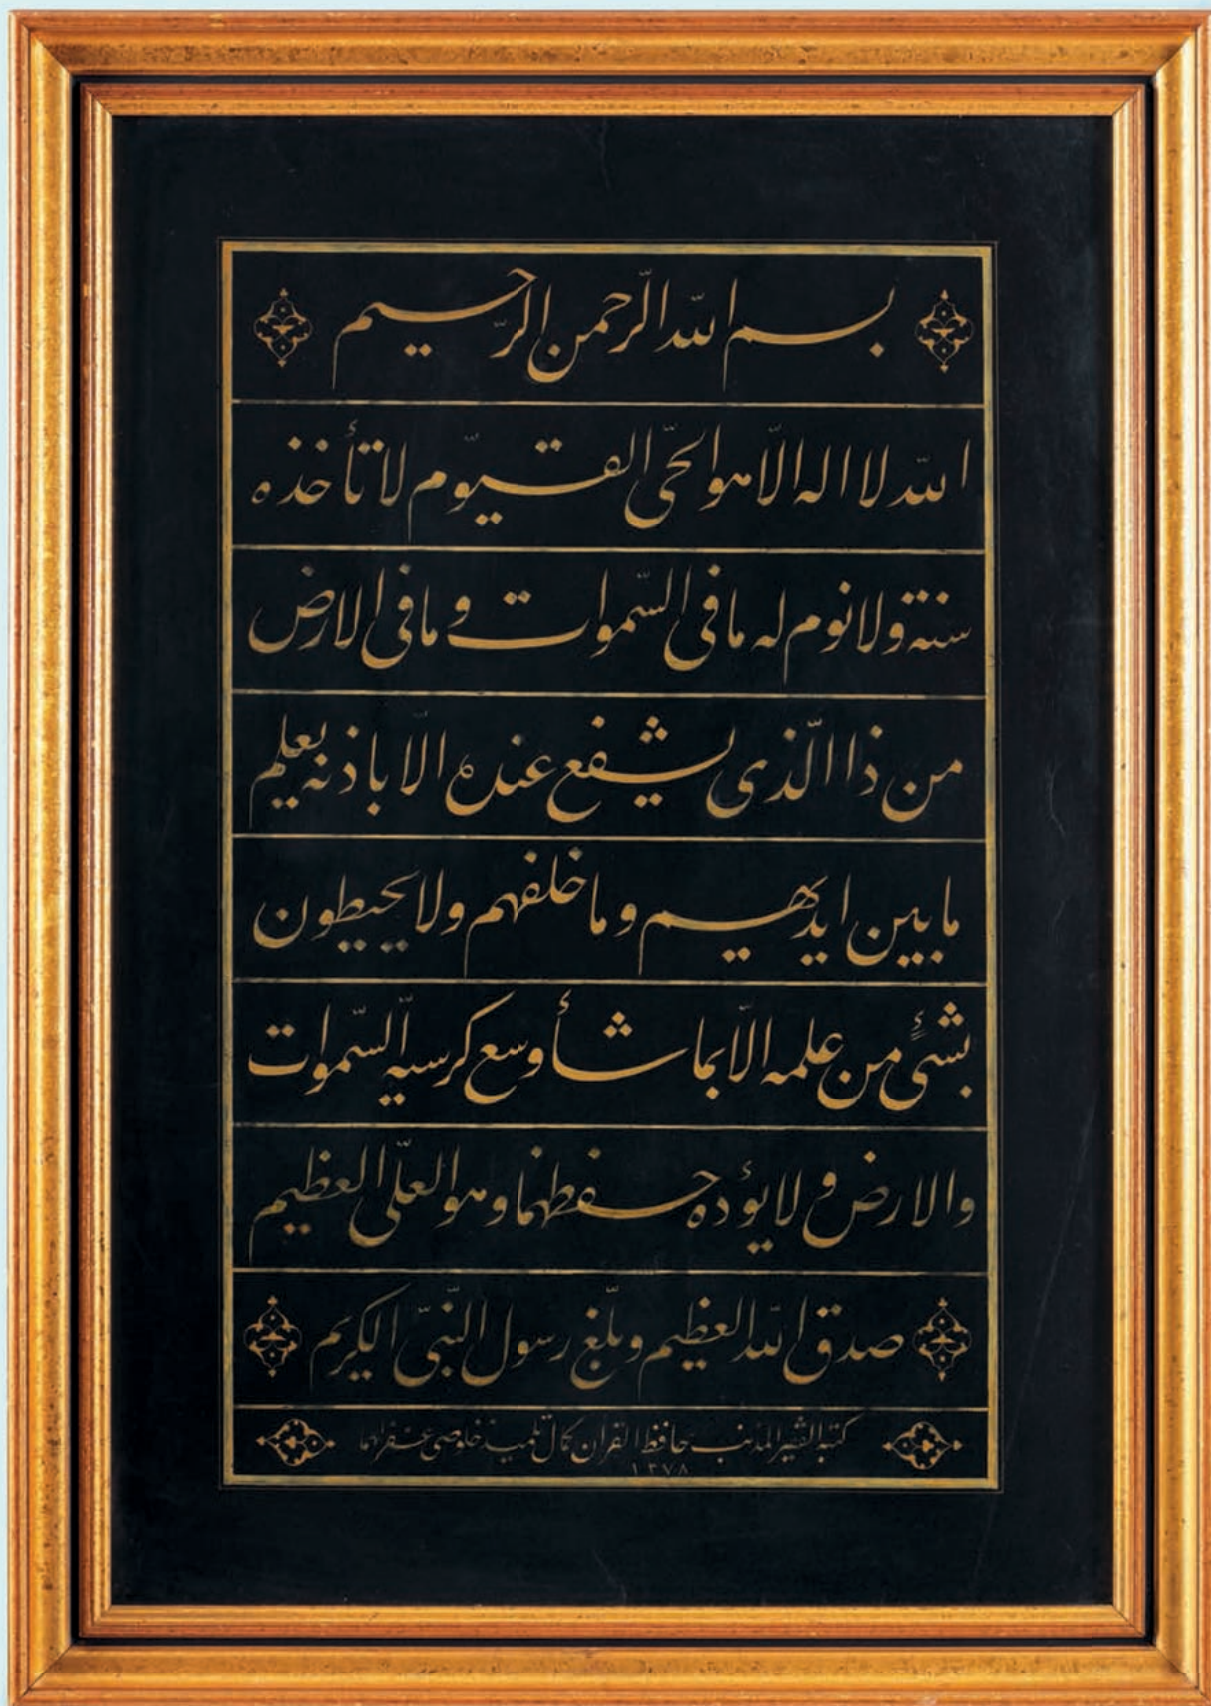 بسم الله الرّحمن الرّحيم
الله لا اله الّا هو الحىّ القيّوم لا تأخذه
سنة ولا نوم له ما فى السّموات وما فى الارض
من ذا الّذى يشفع عنده الّا باذنه يعلم
ما بين ايديهم وما خلفهم ولا يحيطون
بشئ من علمه الّا بما شأ وسع كرسيه السّموات
والارض ولا يؤده حفظهما وهو العلىّ العظيم
صدق الله العظيم وبلّغ رسول النّبىّ الكريم
كتبه الفقير المذنب حافظ القرآن كمال تلميذ خلوصى غفرلهما
١٣٧٨